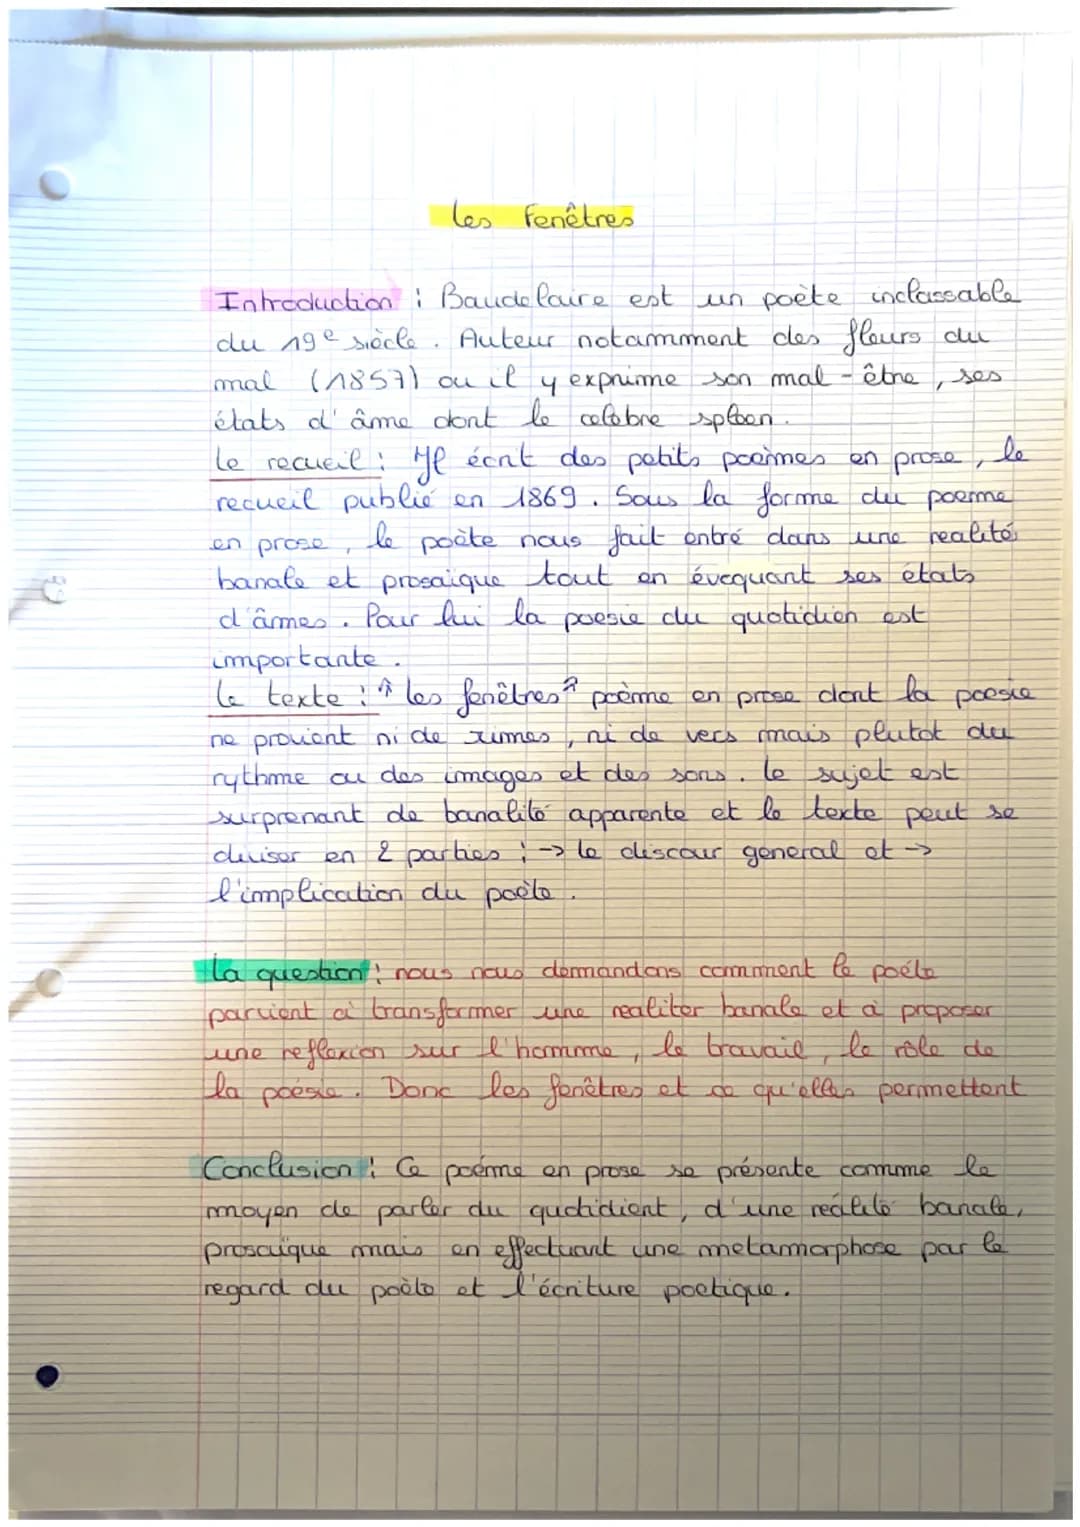 les Fenêtres
Introduction : Baudelaire est un poète inclassable
du 19e siècle. Auteur notamment des fleurs du
mal (1857) ou il y exprime son mal-être, ses
états d'âme dont le celèbre spleen.
Le recueil : Il écrit des petits poèmes en prose, le
recueil publié en 1869. Sous la forme du poeme
en prose, le poète nous fait entré dans une realité
banale et prosaïque tout en évequant ses états
d'âmes. Pour lui la poesie du quotidien est
importante.
Le texte : "les fenêtres" poème en prose dont la poesie
ne provient ni de rimes, ni de vers mais plutot du
rythme ou des images et des sons. le sujet est
surprenant de banalité apparente et le texte peut se
diviser en 2 parties : -> le discour general et ->
l'implication du poète.
La question : nous nous demandons comment le poète
parvient à transformer une realiter banale et à proposer
une reflexion sur l'homme, le travail, le rôle de
la poésie. Donc les fenêtres et ce qu'elles permettent
Conclusion : Ce poéme en prose se présente comme le
moyen de parler du quotidient, d'une réalité banale,
prosaïque mais en effectuant une metamorphose par le
regard du poète et l'écriture poetique.